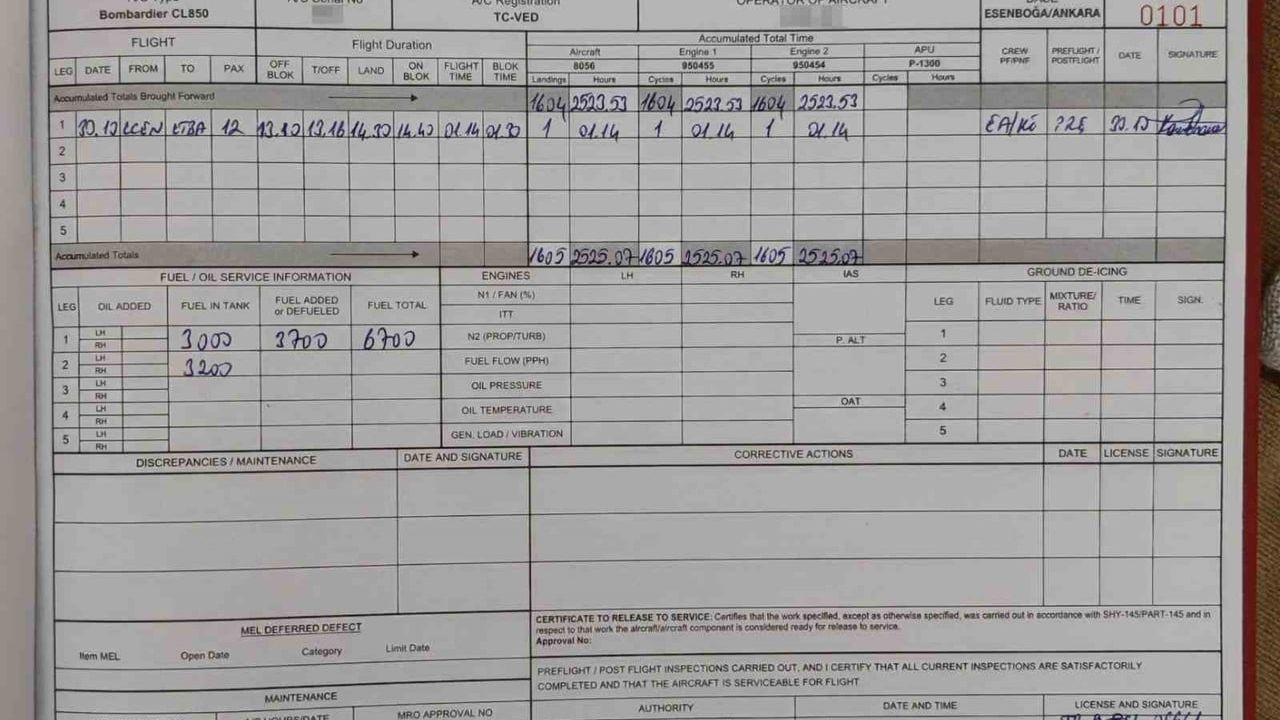 A/C Type A/C Serial No A/C Registration OPERATOR OF AIRCRAFT BASE
Bombardier CL850 TC-VED ESENBOĞA/ANKARA 0101
FLIGHT Flight Duration Accumulated Total Time
Aircraft Engine 1 Engine 2 APU
8056 950455 950454 P-1300
LEG DATE FROM TO PAX OFF BLOK T/OFF LAND ON BLOK FLIGHT TIME BLOK TIME Landings Hours Cycles Hours Cycles Hours Cycles Hours CREW PF/PNF PREFLIGHT / POSTFLIGHT DATE SIGNATURE
Accumulated Totals Brought Forward 1604 2523.53 1604 2523.53 1604 2523.53
1 30.10 LCEN LTBA 12 13.10 13.16 14.30 14.40 01.14 01.30 1 01.14 1 01.14 1 01.14 30.10
2
3
4
5
Accumulated Totals 1605 2525.07 1605 2525.07 1605 2525.07
FUEL / OIL SERVICE INFORMATION ENGINES LH RH IAS GROUND DE-ICING
LEG OIL ADDED FUEL IN TANK FUEL ADDED or DEFUELED FUEL TOTAL N1 / FAN (%) LEG FLUID TYPE MIXTURE/ RATIO TIME SIGN.
ITT
1 LH RH 3000 3700 6700 N2 (PROP/TURB) P. ALT 1
2 LH RH 3200 FUEL FLOW (PPH) 2
3 LH RH OIL PRESSURE 3
4 LH RH OIL TEMPERATURE OAT 4
5 LH RH GEN. LOAD / VIBRATION 5
DISCREPANCIES / MAINTENANCE DATE AND SIGNATURE CORRECTIVE ACTIONS DATE LICENSE SIGNATURE
CERTIFICATE TO RELEASE TO SERVICE: Certifies that the work specified, except as otherwise specified, was carried out in accordance with SHY-145/PART-145 and in
respect to that work the aircraft/aircraft component is considered ready for release to service.
Approval No:
MEL DEFERRED DEFECT
Item MEL Open Date Category Limit Date
PREFLIGHT / POST FLIGHT INSPECTIONS CARRIED OUT, AND I CERTIFY THAT ALL CURRENT INSPECTIONS ARE SATISFACTORILY
COMPLETED AND THAT THE AIRCRAFT IS SERVICEABLE FOR FLIGHT
MAINTENANCE
MRO APPROVAL NO AUTHORITY DATE AND TIME LICENSE AND SIGNATURE